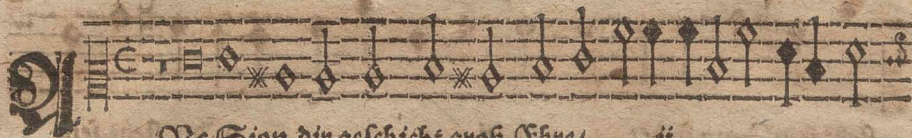 A
Sion dir geschicht groß Ehre/ ij